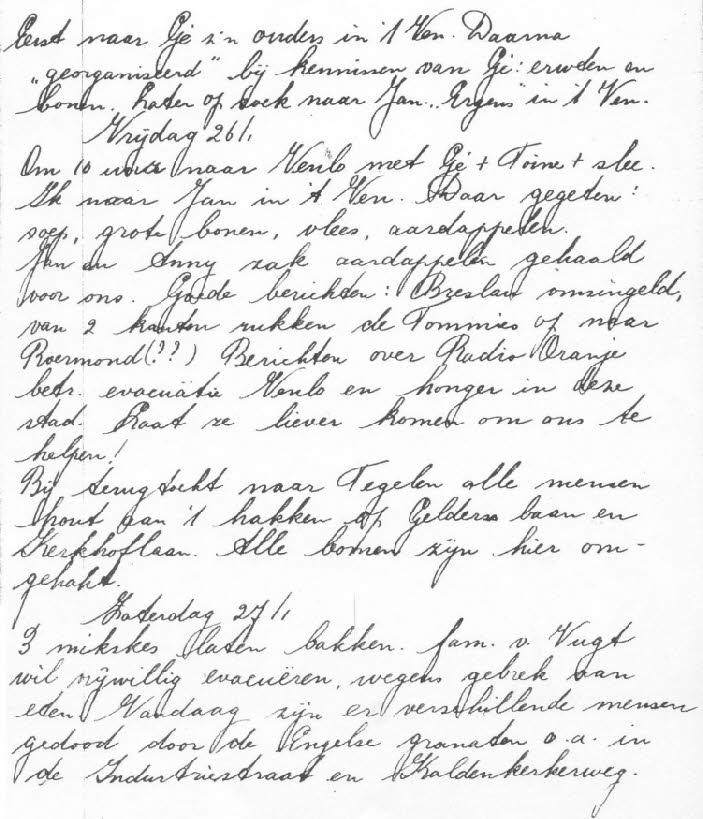 Eerst naar Gé z'n ouders in 't Ven. Daarna
„georganiseerd" bij kennissen van Gé: erwten en
bonen. Later op zoek naar Jan. „Ergens" in 't Ven.
Vrijdag 26/1
Om 10 uur naar Venlo met Gé + Toine + slee.
Ik naar Jan in 't Ven. Daar gegeten:
soep, grote bonen, vlees, aardappelen.
Jan en Anny zak aardappelen gehaald
voor ons. Goede berichten: Breslau omsingeld,
van 2 kanten rukken de Tommies op naar
Roermond (??) Berichten over Radio Oranje
betr. evacuatie Venlo en honger in deze
stad. Laat ze liever komen om ons te
helpen!
Bij terugtocht naar Tegelen alle mensen
hout aan 't hakken op Gelderse baan en
Kerkhoflaan. Alle bomen zijn hier om-
gehakt.
Zaterdag 27/1
3 mikskes laten bakken. fam. v. Vugt
wil vrijwillig evacuëren, wegens gebrek aan
eten. Vandaag zijn er verschillende mensen
gedood door de Engelse granaten o.a. in
de Industriestraat en Kaldenkerkerweg.